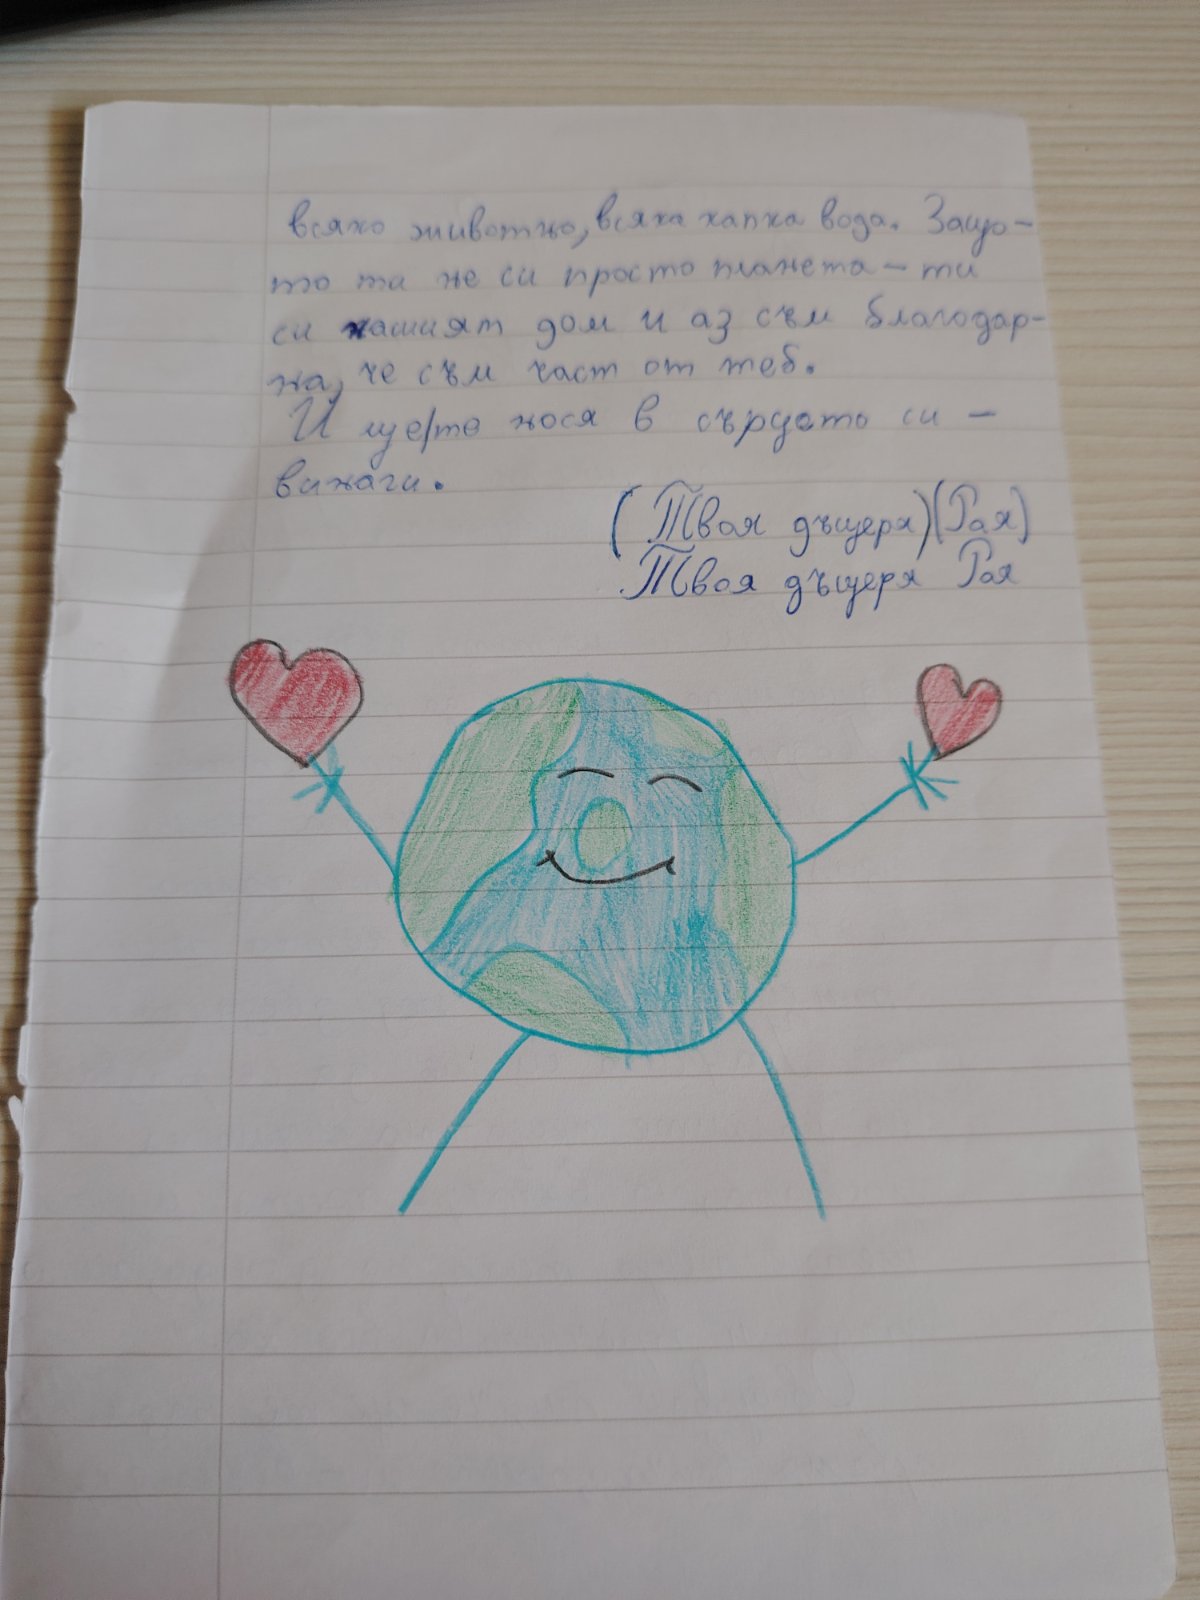 всяко животно, всяка капка вода. Защо-
то ти не си просто планета – ти
си нашият дом и аз съм благодар-
на, че съм част от теб.
И ще те нося в сърцето си –
винаги.
(Твоя дъщеря) (Рая)
Твоя дъщеря Рая